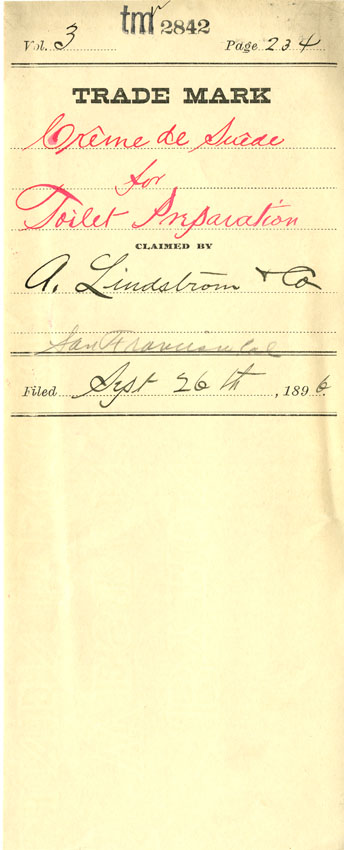 tmr 2842
Vol. 3 Page 234
TRADE MARK
Crême de Suède
for
Toilet Preparation
CLAIMED BY
A. Lindström & Co
San Francisco Cal
Filed Sept 26th, 1896.